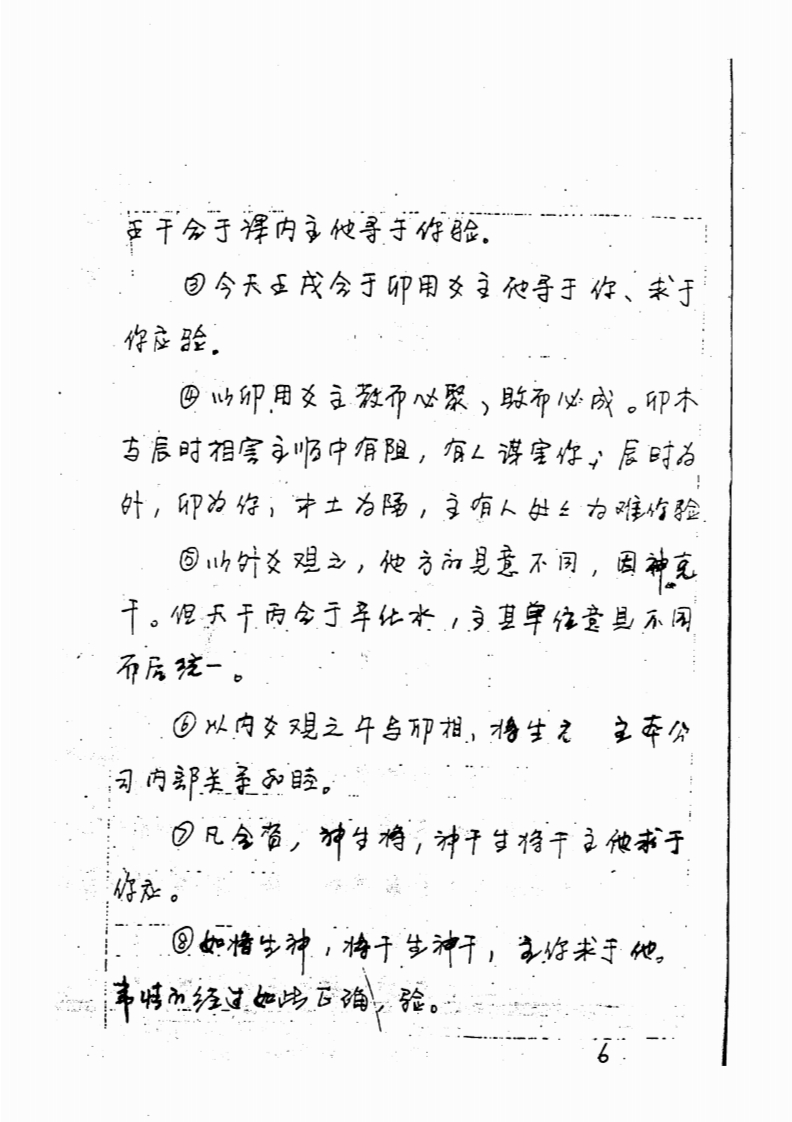 壬干合于课内主他寻于你验。
③今天壬戌合于卯用爻主他寻于你、求于
你应验。
④以卯用爻主散而必聚、败而必成。卯木
与辰时相害主顺中有阻，有人谋害你，辰时为
外，卯为你，木土为隔，主有人处处为难你验
⑤以外爻观之，他方的见意不同，因神克
干。但天干丙合于辛化水，主其单位意见不同
而后统一。
⑥以内爻观之午与卯相，将生元 主本公
司内部关系和睦。
⑦凡合资，神生将，神干生将干主他求于
你应。
⑧如将生神，将干生神干，主你求于他。
事情的经过如此正确，验。
6